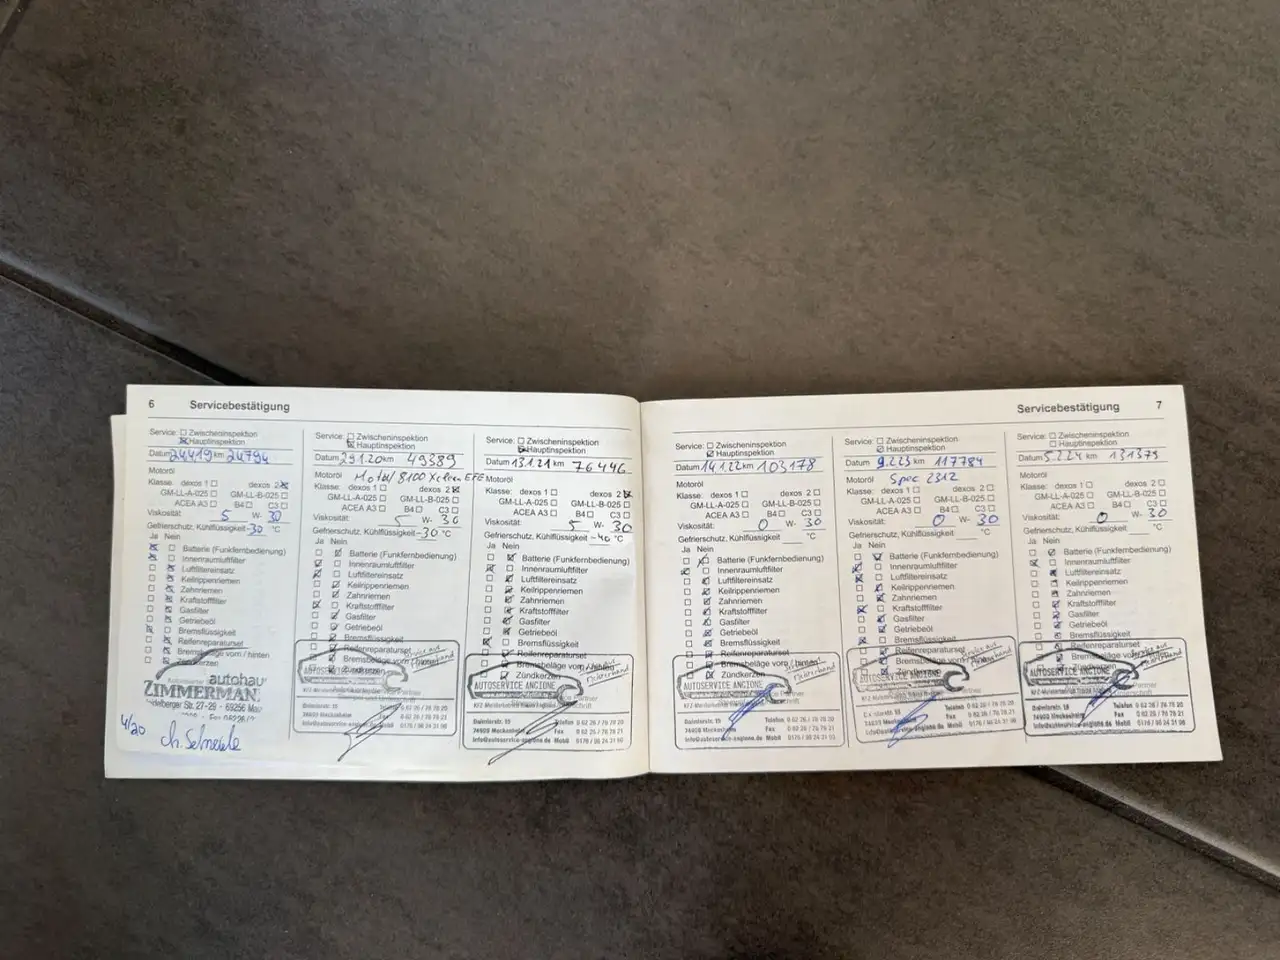 6 Servicebestätigung
Service: ☐ Zwischeninspektion
☒ Hauptinspektion
Datum 24.4.19 km 24794
Motoröl
Klasse: dexos 1 ☐ dexos 2 ☒
GM-LL-A-025 ☐ GM-LL-B-025 ☐
ACEA A3 ☐ B4 ☐ C3 ☐
Viskosität: 5 W- 30
Gefrierschutz, Kühlflüssigkeit -30 °C
Ja Nein
Batterie (Funkfernbedienung)
Innenraumluftfilter
Luftfiltereinsatz
Keilrippenriemen
Zahnriemen
Kraftstofffilter
Gasfilter
Getriebeöl
Bremsflüssigkeit
Reifenreparaturset
Bremsbeläge vorn / hinten
Zündkerzen
autohau
ZIMMERMAN
Str. 27-29 - 69256 Mau
4/20
Service: ☐ Zwischeninspektion
☒ Hauptinspektion
Datum 29.1.20 km 49389
Motoröl Motul 8100 Xclean EFE
Klasse: dexos 1 ☐ dexos 2 ☒
GM-LL-A-025 ☐ GM-LL-B-025 ☐
ACEA A3 ☐ B4 ☐ C3 ☐
Viskosität: 5 W- 30
Gefrierschutz, Kühlflüssigkeit -30 °C
Ja Nein
Batterie (Funkfernbedienung)
Innenraumluftfilter
Luftfiltereinsatz
Keilrippenriemen
Zahnriemen
Kraftstofffilter
Gasfilter
Getriebeöl
Bremsflüssigkeit
Reifenreparaturset
Bremsbeläge vorn / hinten
AUTOSERVICE ANGIONE
Daimlerstr. 15 Telefon 0 62 26 / 78 78 20
74909 Meckesheim Fax 0 62 26 / 78 78 21
info@autoservice-angione.de Mobil
Service: ☐ Zwischeninspektion
☒ Hauptinspektion
Datum 13.1.21 km 76446
Motoröl
Klasse: dexos 1 ☐ dexos 2 ☒
GM-LL-A-025 ☐ GM-LL-B-025 ☐
ACEA A3 ☐ B4 ☐ C3 ☐
Viskosität: 5 W- 30
Gefrierschutz, Kühlflüssigkeit -40 °C
Ja Nein
Batterie (Funkfernbedienung)
Innenraumluftfilter
Luftfiltereinsatz
Keilrippenriemen
Zahnriemen
Kraftstofffilter
Gasfilter
Getriebeöl
Bremsflüssigkeit
Reifenreparaturset
Bremsbeläge vorn / hinten
Zündkerzen
AUTOSERVICE ANGIONE
Daimlerstr. 15 Telefon 0 62 26 / 78 78 20
74909 Meckesheim Fax 0 62 26 / 78 78 21
info@autoservice-angione.de Mobil
Servicebestätigung 7
Service: ☐ Zwischeninspektion
☒ Hauptinspektion
Datum 14.1.22 km 103178
Motoröl
Klasse: dexos 1 ☐ dexos 2 ☐
GM-LL-A-025 ☐ GM-LL-B-025 ☐
ACEA A3 ☐ B4 ☐ C3 ☐
Viskosität: 0 W- 30
Gefrierschutz, Kühlflüssigkeit °C
Ja Nein
Batterie (Funkfernbedienung)
Innenraumluftfilter
Luftfiltereinsatz
Keilrippenriemen
Zahnriemen
Kraftstofffilter
Gasfilter
Getriebeöl
Bremsflüssigkeit
Reifenreparaturset
Bremsbeläge vorn / hinten
Zündkerzen
AUTOSERVICE ANGIONE
Daimlerstr. 15 Telefon 0 62 26 / 78 78 20
74909 Meckesheim Fax 0 62 26 / 78 78 21
info@autoservice-angione.de Mobil
Service: ☐ Zwischeninspektion
☒ Hauptinspektion
Datum 9.2.23 km 117784
Motoröl Spec 2312
Klasse: dexos 1 ☐ dexos 2 ☐
GM-LL-A-025 ☐ GM-LL-B-025 ☐
ACEA A3 ☐ B4 ☐ C3 ☐
Viskosität: 0 W- 30
Gefrierschutz, Kühlflüssigkeit °C
Ja Nein
Batterie (Funkfernbedienung)
Innenraumluftfilter
Luftfiltereinsatz
Keilrippenriemen
Zahnriemen
Kraftstofffilter
Gasfilter
Getriebeöl
Bremsflüssigkeit
Reifenreparaturset
Bremsbeläge vorn / hinten
Zündkerzen
AUTOSERVICE ANGIONE
Telefon 0 62 26 / 78 78 20
Meckesheim Fax 0 62 26 / 78 78 21
info@autoservice-angione.de Mobil
Service: ☐ Zwischeninspektion
☐ Hauptinspektion
Datum 5.2.24 km 131375
Motoröl
Klasse: dexos 1 ☐ dexos 2 ☐
GM-LL-A-025 ☐ GM-LL-B-025 ☐
ACEA A3 ☐ B4 ☐ C3 ☐
Viskosität: 0 W- 30
Gefrierschutz, Kühlflüssigkeit °C
Ja Nein
Batterie (Funkfernbedienung)
Innenraumluftfilter
Luftfiltereinsatz
Keilrippenriemen
Zahnriemen
Kraftstofffilter
Gasfilter
Getriebeöl
Bremsflüssigkeit
Reifenreparaturset
Bremsbeläge vorn / hinten
Zündkerzen
AUTOSERVICE ANGIONE
Daimlerstr. 15 Telefon 0 62 26 / 78 78 20
74909 Meckesheim Fax 0 62 26 / 78 78 21
info@autoservice-angione.de Mobil